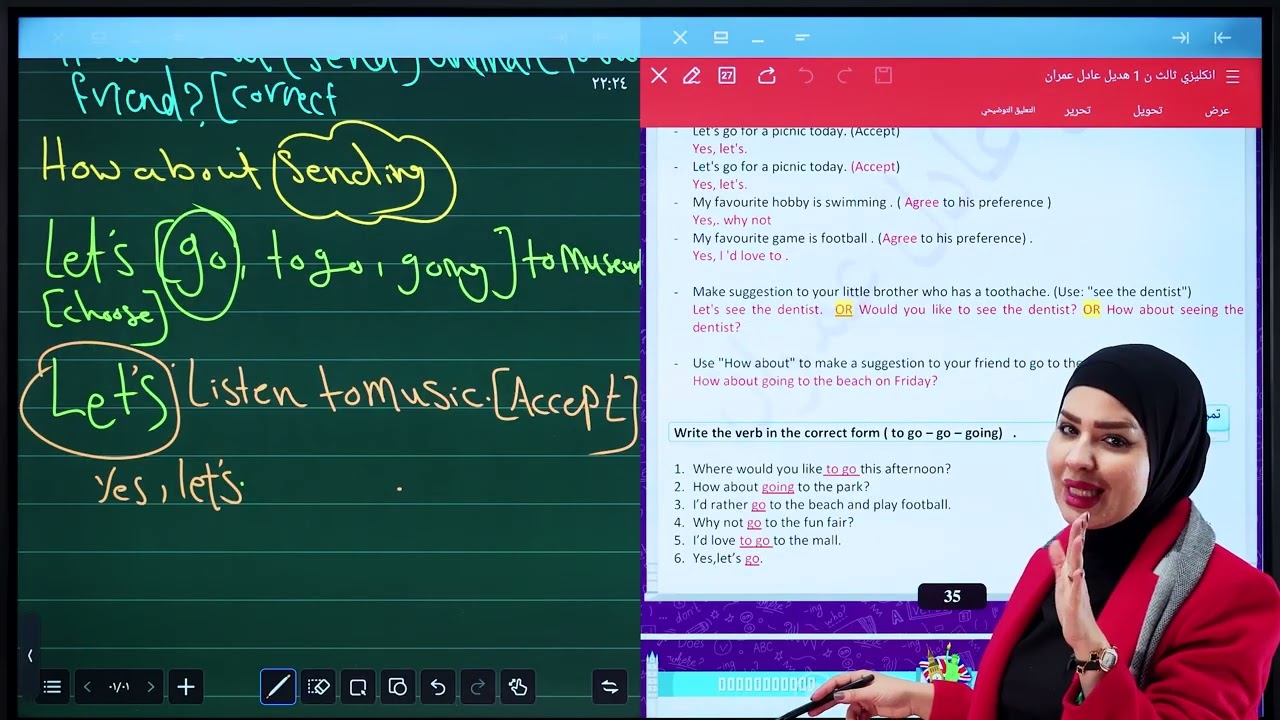 ٢٢:٢٤
friend? [correct
How about sending
Let's [go, to go, going] to Museum
[choose]
Let's Listen to Music. [Accept]
Yes, let's
٠١/٠١
27
انكليزي ثالث ن 1 هديل عادل عمران
عرض
تحويل
تحرير
التعليق التوضيحي
- Let's go for a picnic today. (Accept)
Yes, let's.
- Let's go for a picnic today. (Accept)
Yes, let's.
- My favourite hobby is swimming . ( Agree to his preference )
Yes,. why not
- My favourite game is football . (Agree to his preference) .
Yes, I 'd love to .
- Make suggestion to your little brother who has a toothache. (Use: "see the dentist")
Let's see the dentist. OR Would you like to see the dentist? OR How about seeing the
dentist?
- Use "How about" to make a suggestion to your friend to go to the
How about going to the beach on Friday?
Write the verb in the correct form ( to go – go – going) .
1. Where would you like to go this afternoon?
2. How about going to the park?
3. I'd rather go to the beach and play football.
4. Why not go to the fun fair?
5. I'd love to go to the mall.
6. Yes,let's go.
35